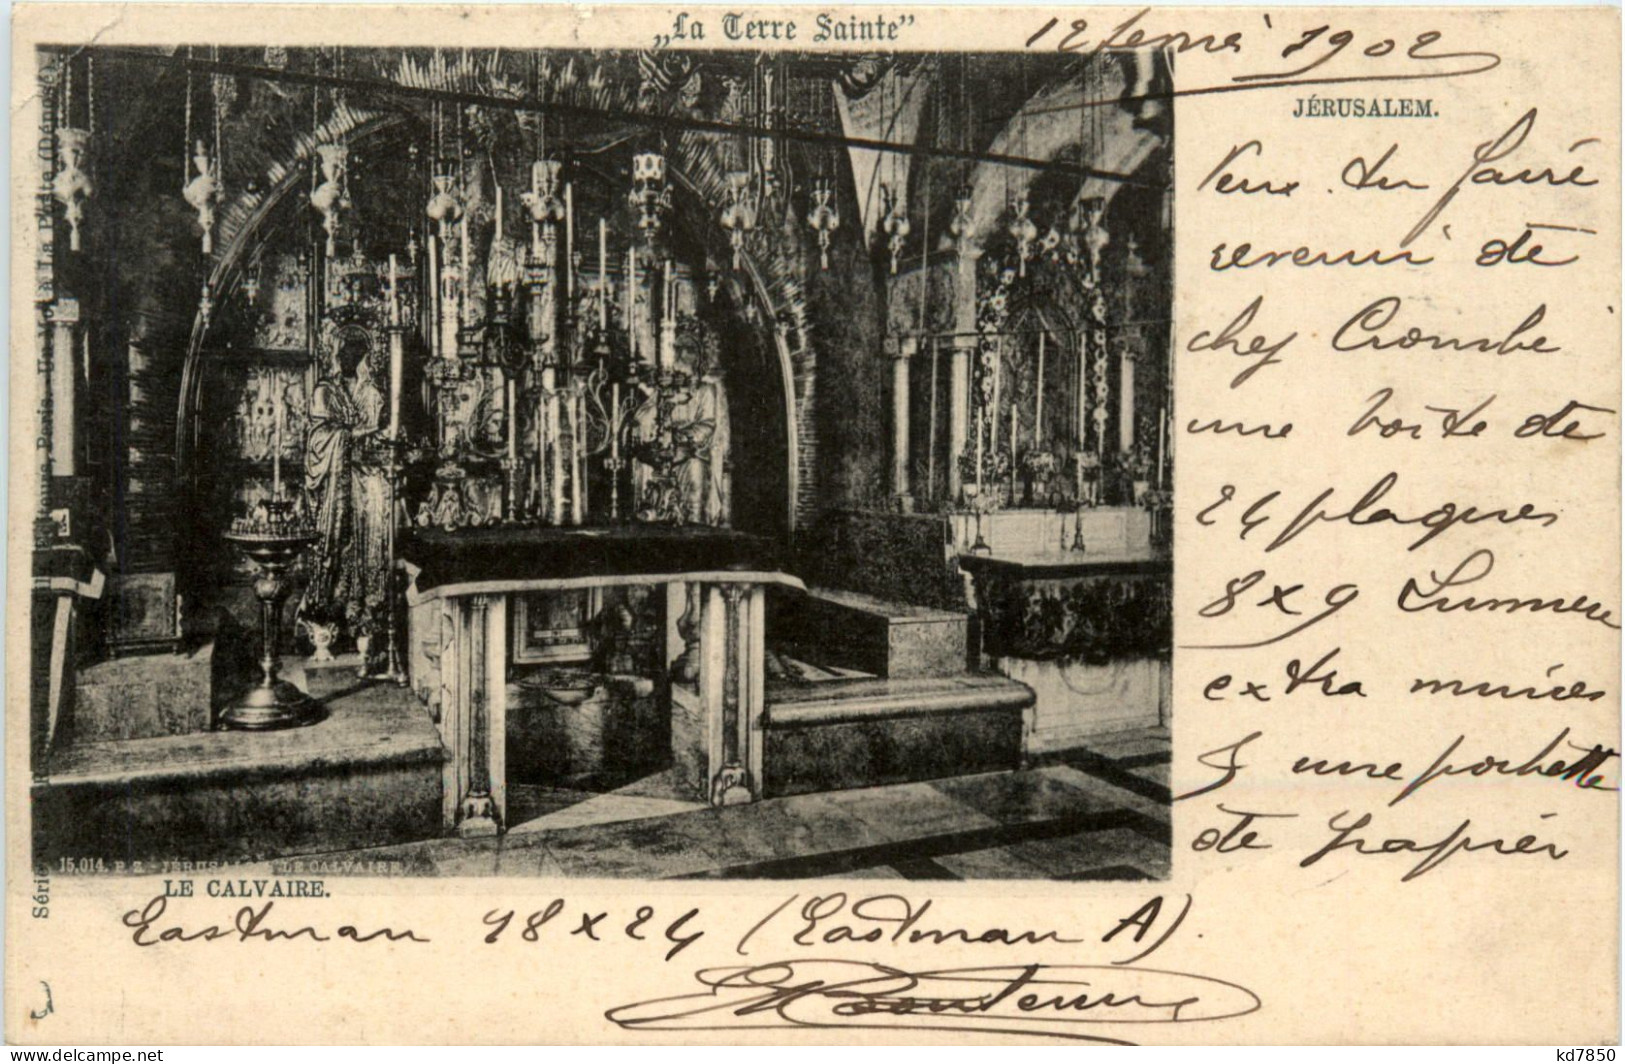 „La Terre Sainte”
12 1902
JÉRUSALEM.
Veux tu faire
revenir de
chez Crombé
une boite de
24 plaques
8 x 9 Lumiere
extra minces
& une pochette
de papier
15,014. P. Z. - JÉRUSALEM. LE CALVAIRE
LE CALVAIRE.
Eastman 18 x 24 (Eastman A).
Série
delcampe.net
kd7850